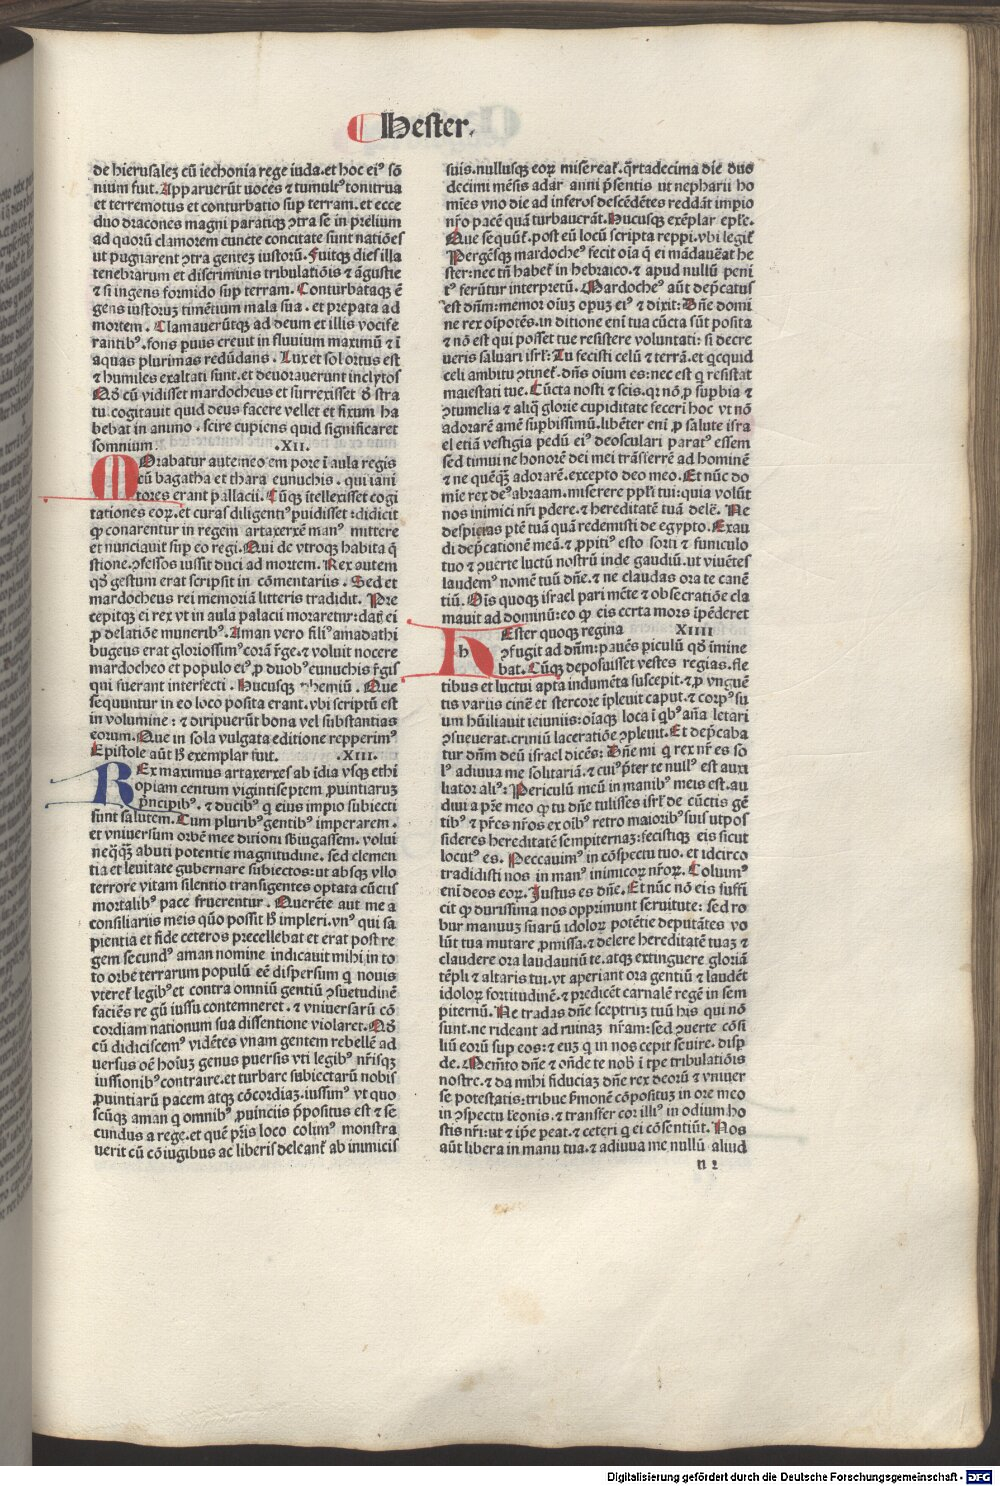 Hester.
de hierusalez cū iechonia rege iuda. et hoc eiꝰ sō
nium fuit. Apparuerūt uoces ⁊ tumultꝰ tonitrua
et terremotus et conturbatio suꝑ terram. et ecce
duo dracones magni paratiqꝫ ꝯtra se in prelium
ad quorū clamorem cuncte concitate sunt natiōes
ut pugnarent ꝯtra gentez iustorū. Fuitqꝫ dies illa
tenebrarum et discriminis tribulatiōis ⁊ āgustie
⁊ si ingens formido suꝑ terram. Conturbataqꝫ ē
gens iustoruꝫ timētium mala sua. et preparata ad
mortem. Clamauerūtqꝫ ad deum et illis vocife
rantibꝰ. fons puus creuit in fluuium maximū ⁊ ī
aquas plurimas redūdans. Lux et sol ortus est
⁊ humiles exaltati sunt. et deuorauerunt inclytos
Qḋ cū vidisset mardocheus et surrexisset ď stra
tu. cogitauit quid deus facere vellet et fixum ha
bebat in animo. scire cupiens quid significaret
somnium .XII.
MOrabatur autem eo em pore ī aula regis
cū bagatha et thara eunuchis. qui iani
tores erant pallacii. Cūqꝫ ītellexisset cogi
tationes eoꝝ. et curas diligentiꝰ ꝑuidisset: didicit
ꝙ conarentur in regem artaxerxē manꝰ mittere
et nunciauit suꝑ eo regi. Qui de vtroqꝫ habita q̄
stione. ꝯfessos iussit duci ad mortem. Rex autem
qḋ gestum erat scripsit in cōmentariis. Sed et
mardocheus rei memoriā litteris tradidit. Pre
cepitqꝫ ei rex vt in aula palacii moraretur: datꝭ ei
ꝓ delatiōe muneribꝰ. Aman vero filiꝰ amadathi
bugeus erat gloriossimꝰ corā r̄ge. ⁊ voluit nocere
mardocheo et populo eiꝰ ꝓ duobꝰ eunuchis r̄gis
qui fuerant interfecti. Hucusqꝫ ꝓhemiū. Que
sequuntur in eo loco posita erant. vbi scriptū est
in volumine: ⁊ diripuerūt bona vel substantias
eorum. Que in sola vulgata editione repperimꝰ
Epistole aūt hꝰ exemplar fuit. .XIII.
REx maximus artaxerxes ab īdia vsqꝫ ethi
opiam centum vigintiseptem ꝓuintiaruꝫ
pⁱncipibꝰ. ⁊ ducibꝰ q eius impio subiecti
sunt salutem. Cum pluribꝰ gentibꝰ imperarem.
et vniuersum orbē mee dicioni sbiugassem. volui
neqꝫq̄ abuti potentie magnitudine. sed clemen
tia et leuitate gubernare subiectos: ut absqꝫ vllo
terrore vitam silentio transigentes optata cūctis
mortalibꝰ pace fruerentur. Querēte aut me a
consiliariis meis quō possit hꝰ impleri. vnꝰ qui sa
pientia et fide ceteros precellebat et erat post re
gem secundꝰ aman nomine indicauit mihi in to
to orbe terrarum populū eē dispersum q nouis
vteret̉ legibꝰ et contra omniū gentiū ꝯsuetudinē
faciēs re gū iussu contemneret. ⁊ vniuersarū cō
cordiam nationum sua dissentione violaret. Qḋ
cū didiciscemꝰ vidētes vnam gentem rebellē ad
uersus oē hoīuꝫ genus ꝑuersis vti legibꝰ nr̄isqꝫ
iussionibꝰ contraire. et turbare subiectarū nobis
ꝓuintiarū pacem atqꝫ cōcordiaꝫ. iussimꝰ vt quo
scūqꝫ aman q omnibꝰ ꝓuinciis p̄positus est ⁊ se
cundus a rege. et quē pr̄is loco colimꝰ monstra
uerit cū cōiugibus ac liberis deleant̉ ab inimicis
suis. nullusqꝫ eoꝝ misereat̉. q̄rtadecima die duo
decimi mēsis adar anni p̄sentis ut nepharii ho
mīes vno die ad inferos descēdētes reddāt impio
nr̄o pacē quā turbauerāt. Hucusqꝫ exēplar epl̄e.
Que sequūt̉. post eū locū scripta reppi. vbi legit̉
Pergēsqꝫ mardocheꝰ fecit oīa q̄ ei mādauēat he
ster: nec tn̄ habet̉ in hebraico. ⁊ apud nullū peni
tꝰ ferūtur interpretū. Mardocheꝰ aūt dep̄catus
est dn̄m: memor oīuꝫ opuꝫ eiꝰ ⁊ dixit: Dn̄e domi
ne rex oīpotēs. in ditione eni tua cūcta sūt posita
⁊ nō est qui posset tue resistere voluntati: si decre
ueris saluari isrl̄: Tu fecisti celū ⁊ terrā. et qcquid
celi ambitu ꝯtinet̉. dn̄s oīum es: nec est q resistat
maiestati tue. Cūcta nosti ⁊ scis. qꝛ nō ꝓ suꝑbia ⁊
ꝯtumelia ⁊ aliq̄ glorie cupiditate feceri hoc vt nō
adorarē amē suꝑbissimū. libēter eni ꝓ salute isra
el etiā vestigia pedū eiꝰ deosculari paratꝰ essem
sed timui ne honorē dei mei trāsferrē ad hominē
⁊ ne quēqꝫ adorarē. excepto deo meo. Et nūc do
mīe rex deꝰ abraam. miserere ppl̄i tui: quia volūt
nos inimici nr̄i ꝑdere. ⁊ hereditatē tuā delē̄. Ne
despicias ꝑtē tuā quā redemisti de egypto. Exau
di dep̄cationē meā. ⁊ ꝓpitiꝰ esto sorti ⁊ funiculo
tuo ⁊ ꝯuerte luctū nostrū inde gaudiū. ut viuētes
laudemꝰ nomē tuū dn̄e. ⁊ ne claudas ora te canē
tiū. Oīs quoqꝫ israel pari mēte ⁊ obsecratiōe cla
mauit ad dominū: eo ꝙ eis certa mors īpēderet
HEster quoqꝫ regina XIIII
ꝯfugit ad dn̄m: pauēs ꝑiculū qḋ īmine
bat. Cūqꝫ deposuisset vestes regias. fle
tibus et luctui apta indumēta suscepit. ⁊ ꝓ vnguē
tis variis cinē et stercore īpleuit caput. ⁊ corpꝰ su
um hūiliauit ieiuniis: oīaqꝫ loca ī qbꝰ an̄a letari
ꝯsueuerat. criniū laceratiōe ꝯpleuit. Et dep̄caba
tur dn̄m deū israel dicēs: Dn̄e mi q rex nr̄ es so
lꝰ adiuua me solitariā. ⁊ cuiꝰ p̄ter te nullꝰ est auxi
liator aliꝰ: Periculū meū in manibꝰ meis est. au
diui a pr̄e meo ꝙ tu dn̄e tulisses isrl̄ de cūctis gē
tibꝰ ⁊ pr̄es nr̄os ex oībꝰ retro maioribꝰ suis ut pos
sideres hereditatē sempiternaꝫ: fecistiqꝫ eis sicut
locutꝰ es. Peccauimꝰ in cōspectu tuo. et idcirco
tradidisti nos in manꝰ inimicoꝝ nr̄oꝝ. Coluimꝰ
eni deos eoꝝ. Justus es dn̄e. Et nūc nō eis suffi
cit ꝙ durissima nos opprimunt seruitute: sed ro
bur manuuꝫ suarū idoloꝝ potētie deputātes vo
lūt tua mutare ꝓmissa. ⁊ delere hereditatē tuaꝫ ⁊
claudere ora laudautiū te. atqꝫ extinguere gloriā
tēpli ⁊ altaris tui. vt aperiant ora gentiū ⁊ laudēt
idoloꝝ fortitudinē. ⁊ predicēt carnalē regē in sem
piternū. Ne tradas dn̄e sceptruꝫ tuū his qui nō
sunt. ne rideant ad ruinaꝫ nr̄am: sed ꝯuerte cōsi
liū eorū suꝑ eos: ⁊ euꝫ q in nos cepit seuire. disꝑ
de. Memēto dn̄e ⁊ on̄de te nobꝭ ī tꝑe tribulatiōis
nostre. ⁊ da mihi fiduciaꝫ dn̄e rex deorū ⁊ vniuer
se potestatis: tribue ẜmonē cōpositus in ore meo
in ꝯspectu leonis. ⁊ transfer cor illiꝰ in odium ho
stis nr̄i: ut ⁊ ip̄e peat. ⁊ ceteri q ei cōsentiūt. Nos
aūt libera in manu tua. ⁊ adiuua me nullū aliud
n 2
Digitalisierung gefördert durch die Deutsche Forschungsgemeinschaft - DFG